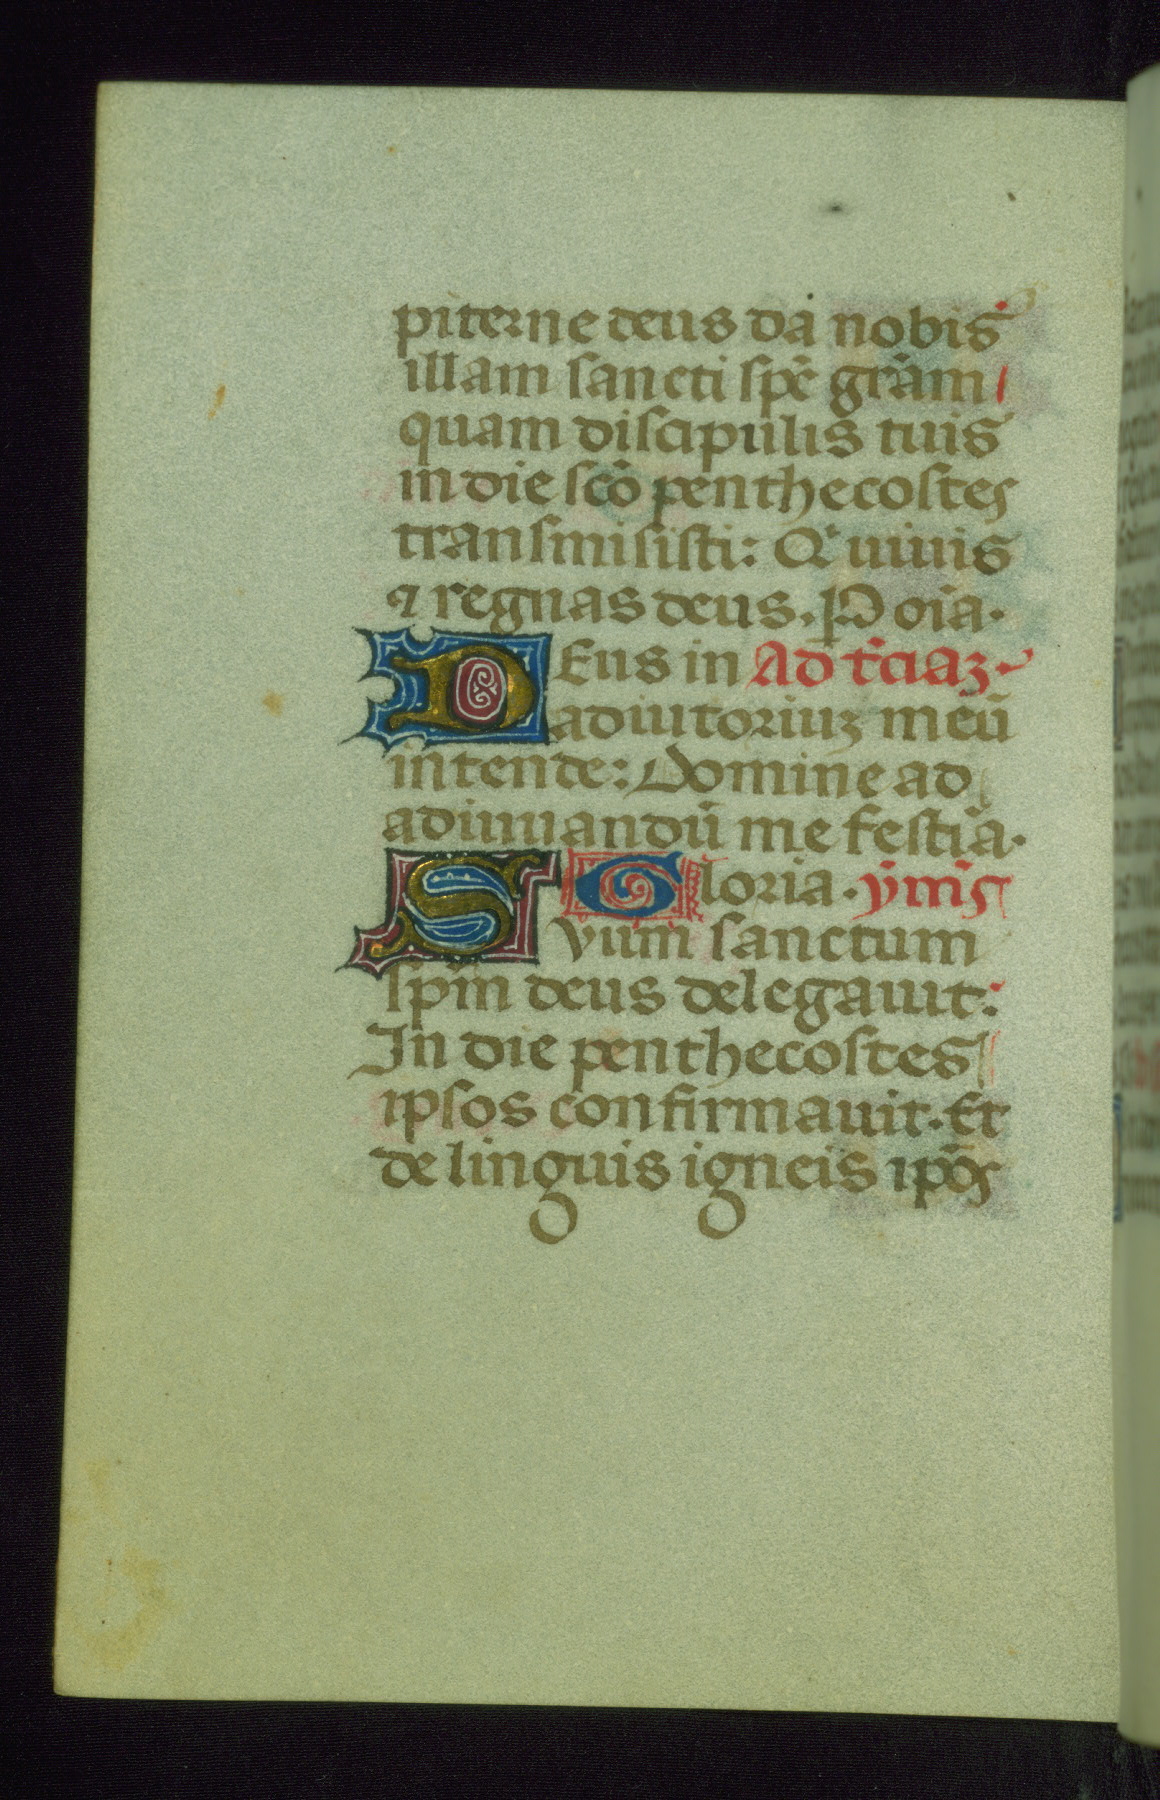 piterne deus da nobis
illam sancti spē grām
quam discipulis tuis
in die scō penthecostes
transmisisti: Qͥ uiuis
⁊ regnas deus. P oīa.
DEus in Ad t̄ciaꝫ.
adiutoriuꝫ meū
intende: Domine ad
adiuuandū me festīa.
S Gloria. ym̄s
vum sanctum
spm̄ deus delegauit:
In die penthecostes
ipsos confirmauit. Et
de linguis igneis ip̄os